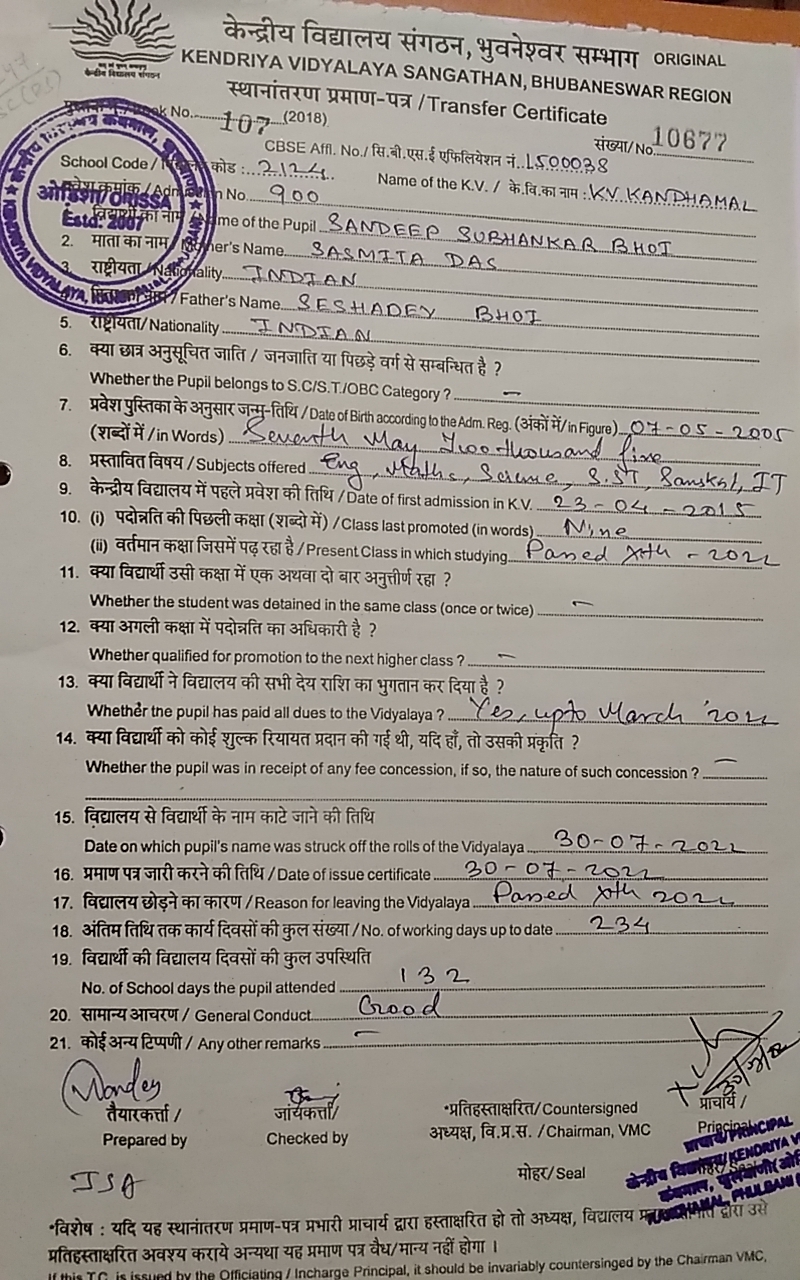 केन्द्रीय विद्यालय संगठन, भुवनेश्वर सम्भाग ORIGINAL
केन्द्रीय विद्यालय संगठन
KENDRIYA VIDYALAYA SANGATHAN, BHUBANESWAR REGION
स्थानांतरण प्रमाण-पत्र /Transfer Certificate
No. 107 (2018) संख्या/ No. 10677
CBSE Affl. No./ सि.बी.एस.ई एफिलियेशन नं. 1500038
School Code / कोड : 2124 Name of the K.V. / के.वि.का नाम : KV KANDHAMAL
No. 900
ओडिशा/ORISSA
Estd. 2007
Name of the Pupil SANDEEP SUBHANKAR BHOI
2. माता का नाम / Mother's Name SASMITA DAS
3. राष्ट्रीयता / Nationality INDIAN
/ Father's Name SESHADEV BHOI
5. राष्ट्रीयता/ Nationality INDIAN
6. क्या छात्र अनुसूचित जाति / जनजाति या पिछड़े वर्ग से सम्बन्धित है ?
Whether the Pupil belongs to S.C/S.T./OBC Category ? –
7. प्रवेश पुस्तिका के अनुसार जन्म-तिथि / Date of Birth according to the Adm. Reg. (अंकों में/ in Figure) 07-05-2005
(शब्दों में / in Words) Seventh May Two thousand five
8. प्रस्तावित विषय / Subjects offered Eng, Maths, Science, S.ST, Sanskt, IT
9. केन्द्रीय विद्यालय में पहले प्रवेश की तिथि / Date of first admission in K.V. 23-04-2015
10. (i) पदोन्नति की पिछली कक्षा (शब्दो में) / Class last promoted (in words) Nine
(ii) वर्तमान कक्षा जिसमें पढ़ रहा है / Present Class in which studying Passed Xth - 2022
11. क्या विद्यार्थी उसी कक्षा में एक अथवा दो बार अनुत्तीर्ण रहा ?
Whether the student was detained in the same class (once or twice) –
12. क्या अगली कक्षा में पदोन्नति का अधिकारी है ?
Whether qualified for promotion to the next higher class ? –
13. क्या विद्यार्थी ने विद्यालय की सभी देय राशि का भुगतान कर दिया है ?
Whether the pupil has paid all dues to the Vidyalaya ? Yes, upto March '2022
14. क्या विद्यार्थी को कोई शुल्क रियायत प्रदान की गई थी, यदि हाँ, तो उसकी प्रकृति ?
Whether the pupil was in receipt of any fee concession, if so, the nature of such concession ? –
15. विद्यालय से विद्यार्थी के नाम काटे जाने की तिथि
Date on which pupil's name was struck off the rolls of the Vidyalaya 30-07-2022
16. प्रमाण पत्र जारी करने की तिथि / Date of issue certificate 30-07-2022
17. विद्यालय छोड़ने का कारण / Reason for leaving the Vidyalaya Passed Xth 2022
18. अंतिम तिथि तक कार्य दिवसों की कुल संख्या / No. of working days up to date 234
19. विद्यार्थी की विद्यालय दिवसों की कुल उपस्थिति
No. of School days the pupil attended 132
20. सामान्य आचरण / General Conduct Good
21. कोई अन्य टिप्पणी / Any other remarks –
तैयारकर्त्ता / जांचकर्त्ता/ *प्रतिहस्ताक्षरित/ Countersigned प्राचार्य /
Prepared by Checked by अध्यक्ष, वि.प्र.स. / Chairman, VMC Principal
प्राचार्य/PRINCIPAL
मोहर/ Seal
केन्द्रीय विद्यालय/KENDRIYA V
KANDHAMAL, PHULBANI
*विशेष : यदि यह स्थानांतरण प्रमाण-पत्र प्रभारी प्राचार्य द्वारा हस्ताक्षरित हो तो अध्यक्ष, विद्यालय द्वारा उसे
प्रतिहस्ताक्षरित अवश्य कराये अन्यथा यह प्रमाण पत्र वैध/मान्य नहीं होगा ।
If this T.C. is issued by the Officiating / Incharge Principal, it should be invariably countersinged by the Chairman VMC,